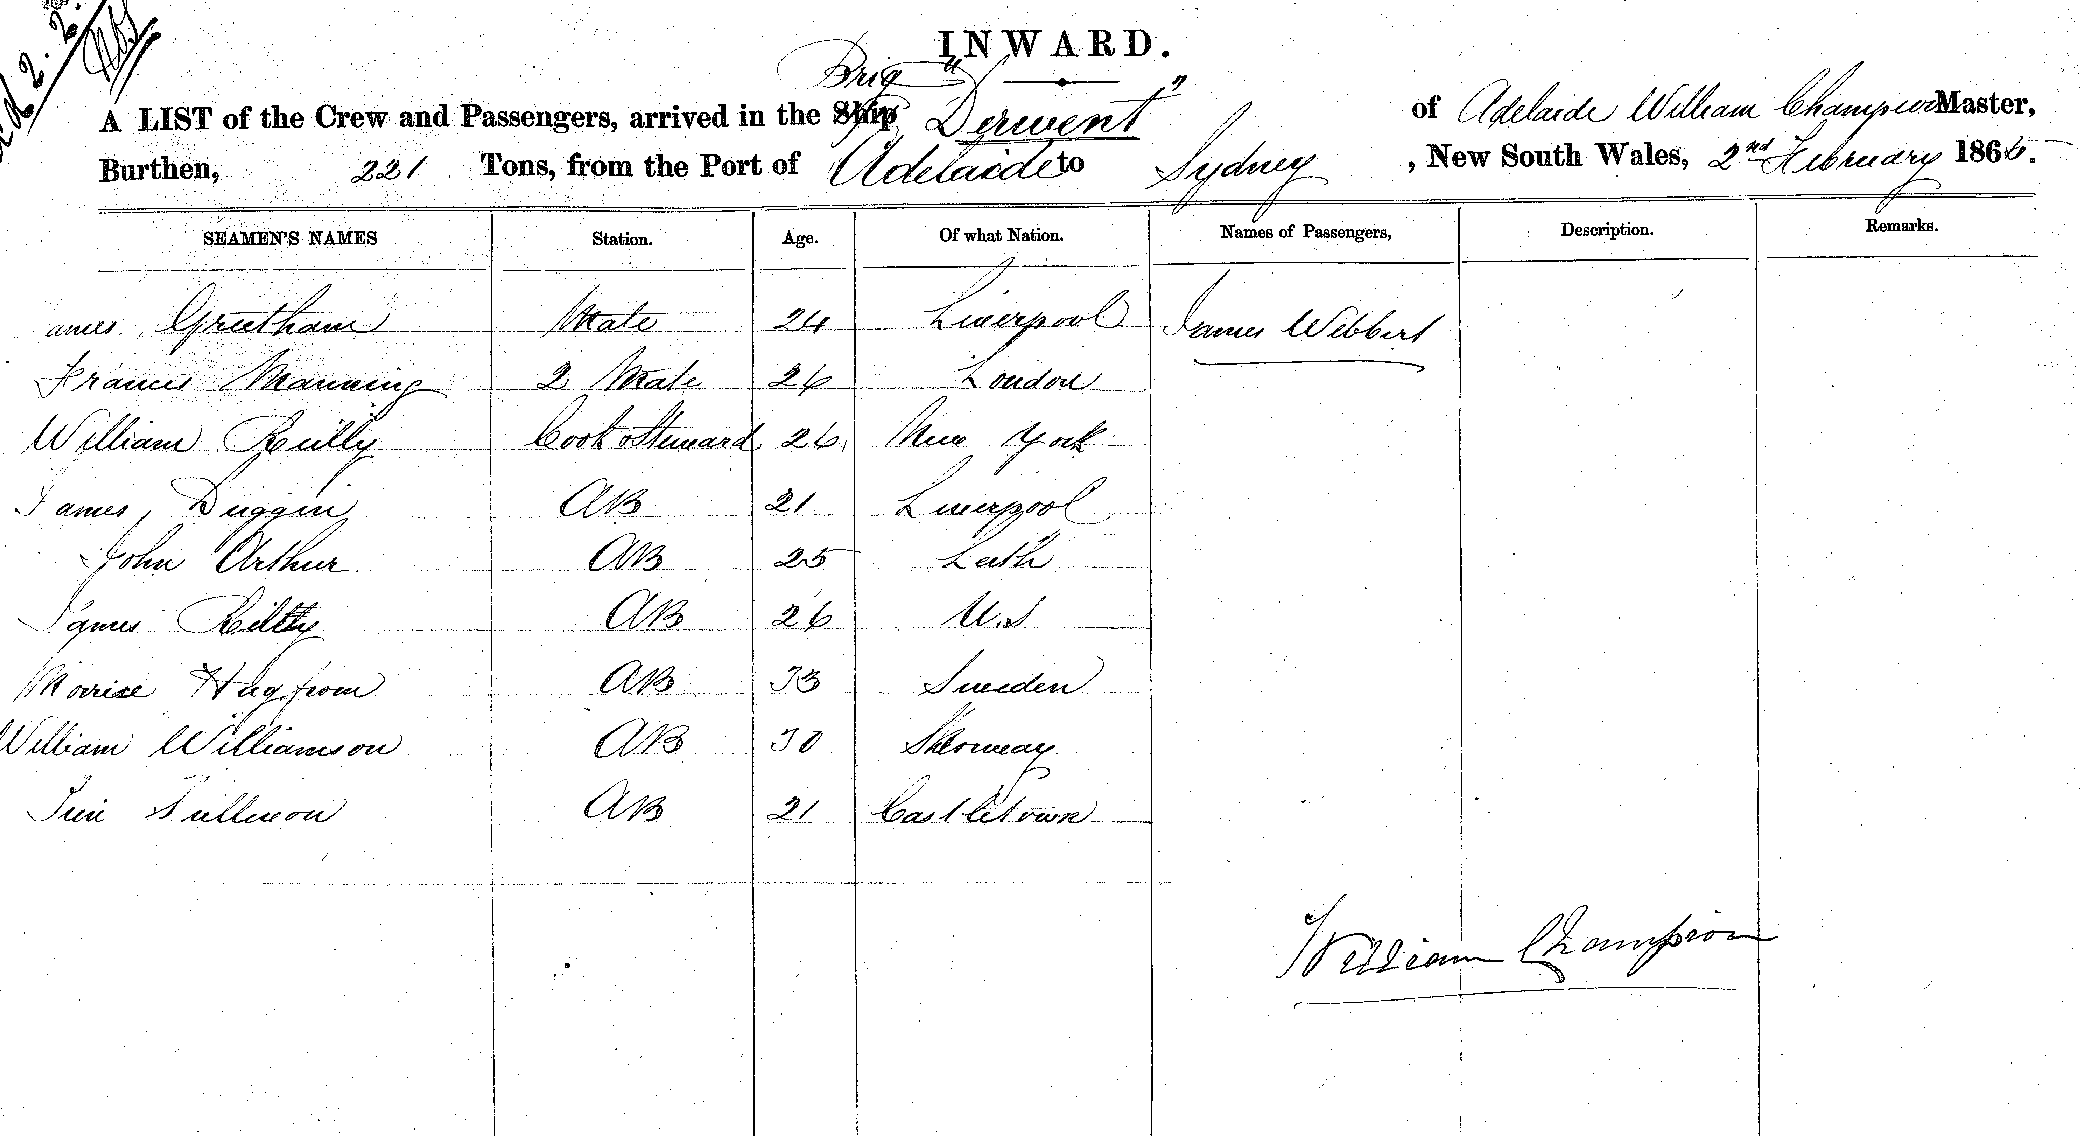 INWARD.
A LIST of the Crew and Passengers, arrived in the Ship Brig "Derwent" of Adelaide William Champion Master,
Burthen, 221 Tons, from the Port of Adelaide to Sydney, New South Wales, 2nd February 1866.
SEAMEN'S NAMES Station. Age. Of what Nation. Names of Passengers, Description. Remarks.
ames Greetham Mate 24 Liverpool James Webbert
Francis Manning 2 Mate 26 London
William Reilly Cook & Steward 26 New York
James Duggin AB 21 Liverpool
John Arthur AB 25 Leith
James AB 26 U.S
Morise Hagfrom AB 33 Sweden
William Williamson AB 30
AB 21 Castletown
William Champion